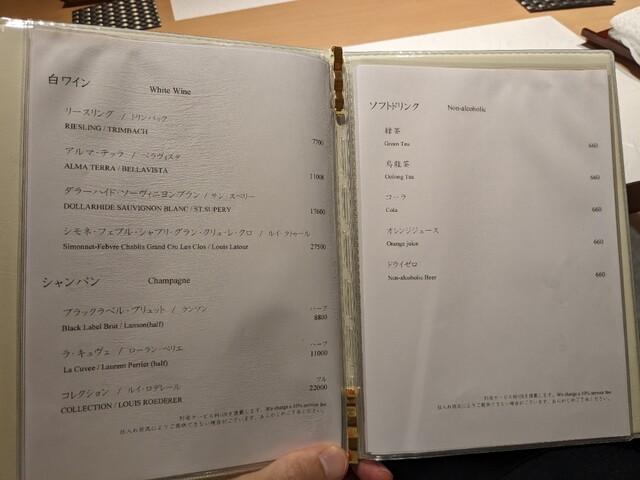 白ワイン
White Wine
リースリング / トリンバック
RIESLING / TRIMBACH
7700
アルマ・テッラ / ベラヴィスタ
ALMA TERRA / BELLAVISTA
11008
ダラーハイド・ソーヴィニヨンブラン / サン・スペリー
DOLLARHIDE SAUVIGNON BLANC / ST.SUPERY
17600
シモネ・フェブル・シャブリ・グラン・クリュ・レ・クロ / ルイ・ラトゥール
Simonnet-Febvre Chablis Grand Cru Les Clos / Louis Latour
27500
シャンパン
Champagne
ブラックラベル・ブリュット / ランソン
ハーフ
Black Label Brut / Lanson(half)
8800
ラ・キュヴェ / ローラン・ペリエ
ハーフ
La Cuvee / Laurent Perrier (half)
11000
コレクション / ルイ・ロデレール
フル
COLLECTION / LOUIS ROEDERER
22000
別途サービス料10%を頂戴します。We charge a 10% service fee
仕入れ状況によりご提供できない場合がございます。あらかじめご了承ください。
ソフトドリンク
Non-alcoholic
緑茶
Green Tea
660
烏龍茶
Oolong Tea
660
コーラ
Cola
660
オレンジジュース
Orange juice
660
ドライゼロ
Non-alcoholic Beer
660
別途サービス料10%を頂戴します。We charge a 10% service fee
仕入れ状況によりご提供できない場合がございます。あらかじめご了承ください。